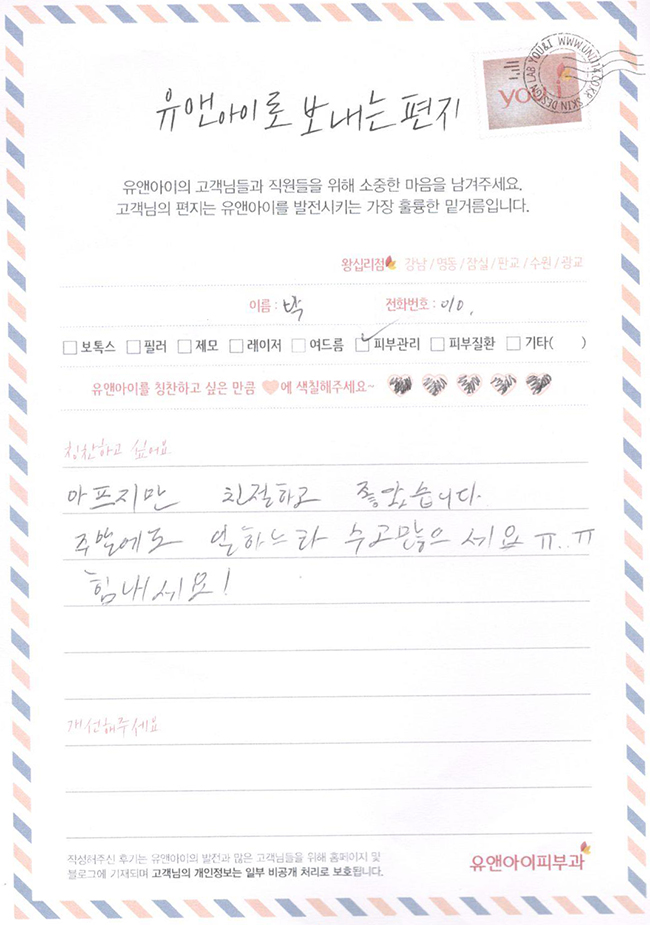 유앤아이로 보내는 편지
SKIN DESIGN LAB YOU&I WWW.UNI114.CO.KR
you
유앤아이의 고객님들과 직원들을 위해 소중한 마음을 남겨주세요.
고객님의 편지는 유앤아이를 발전시키는 가장 훌륭한 밑거름입니다.
왕십리점 강남 / 명동 / 잠실 / 판교 / 수원 / 광교
이름 : 박 전화번호 : 010.
보톡스 필러 제모 레이저 여드름 피부관리 피부질환 기타( )
유앤아이를 칭찬하고 싶은 만큼 에 색칠해주세요~
칭찬하고 싶어요
아프지만 친절하고 좋았습니다.
주말에도 일하느라 수고많으세요 ㅠ..ㅠ
힘내세요!
개선해주세요
작성해주신 후기는 유앤아이의 발전과 많은 고객님들을 위해 홈페이지 및
블로그에 기재되며 고객님의 개인정보는 일부 비공개 처리로 보호됩니다.
유앤아이피부과